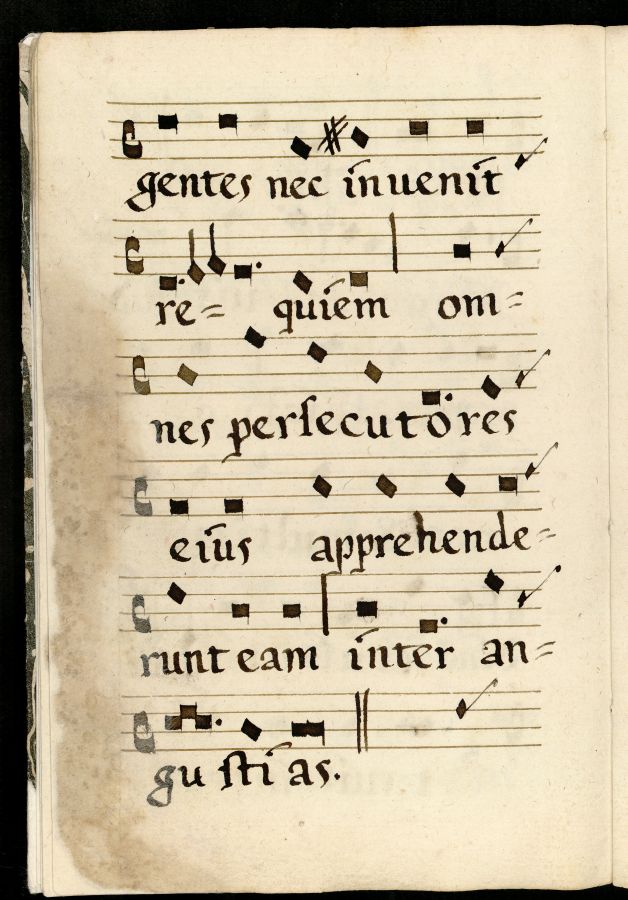 gentes nec inuenit
re= quiem om=
nes perſecutores
eius apprehende=
runt eam inter an=
gu ſti as.